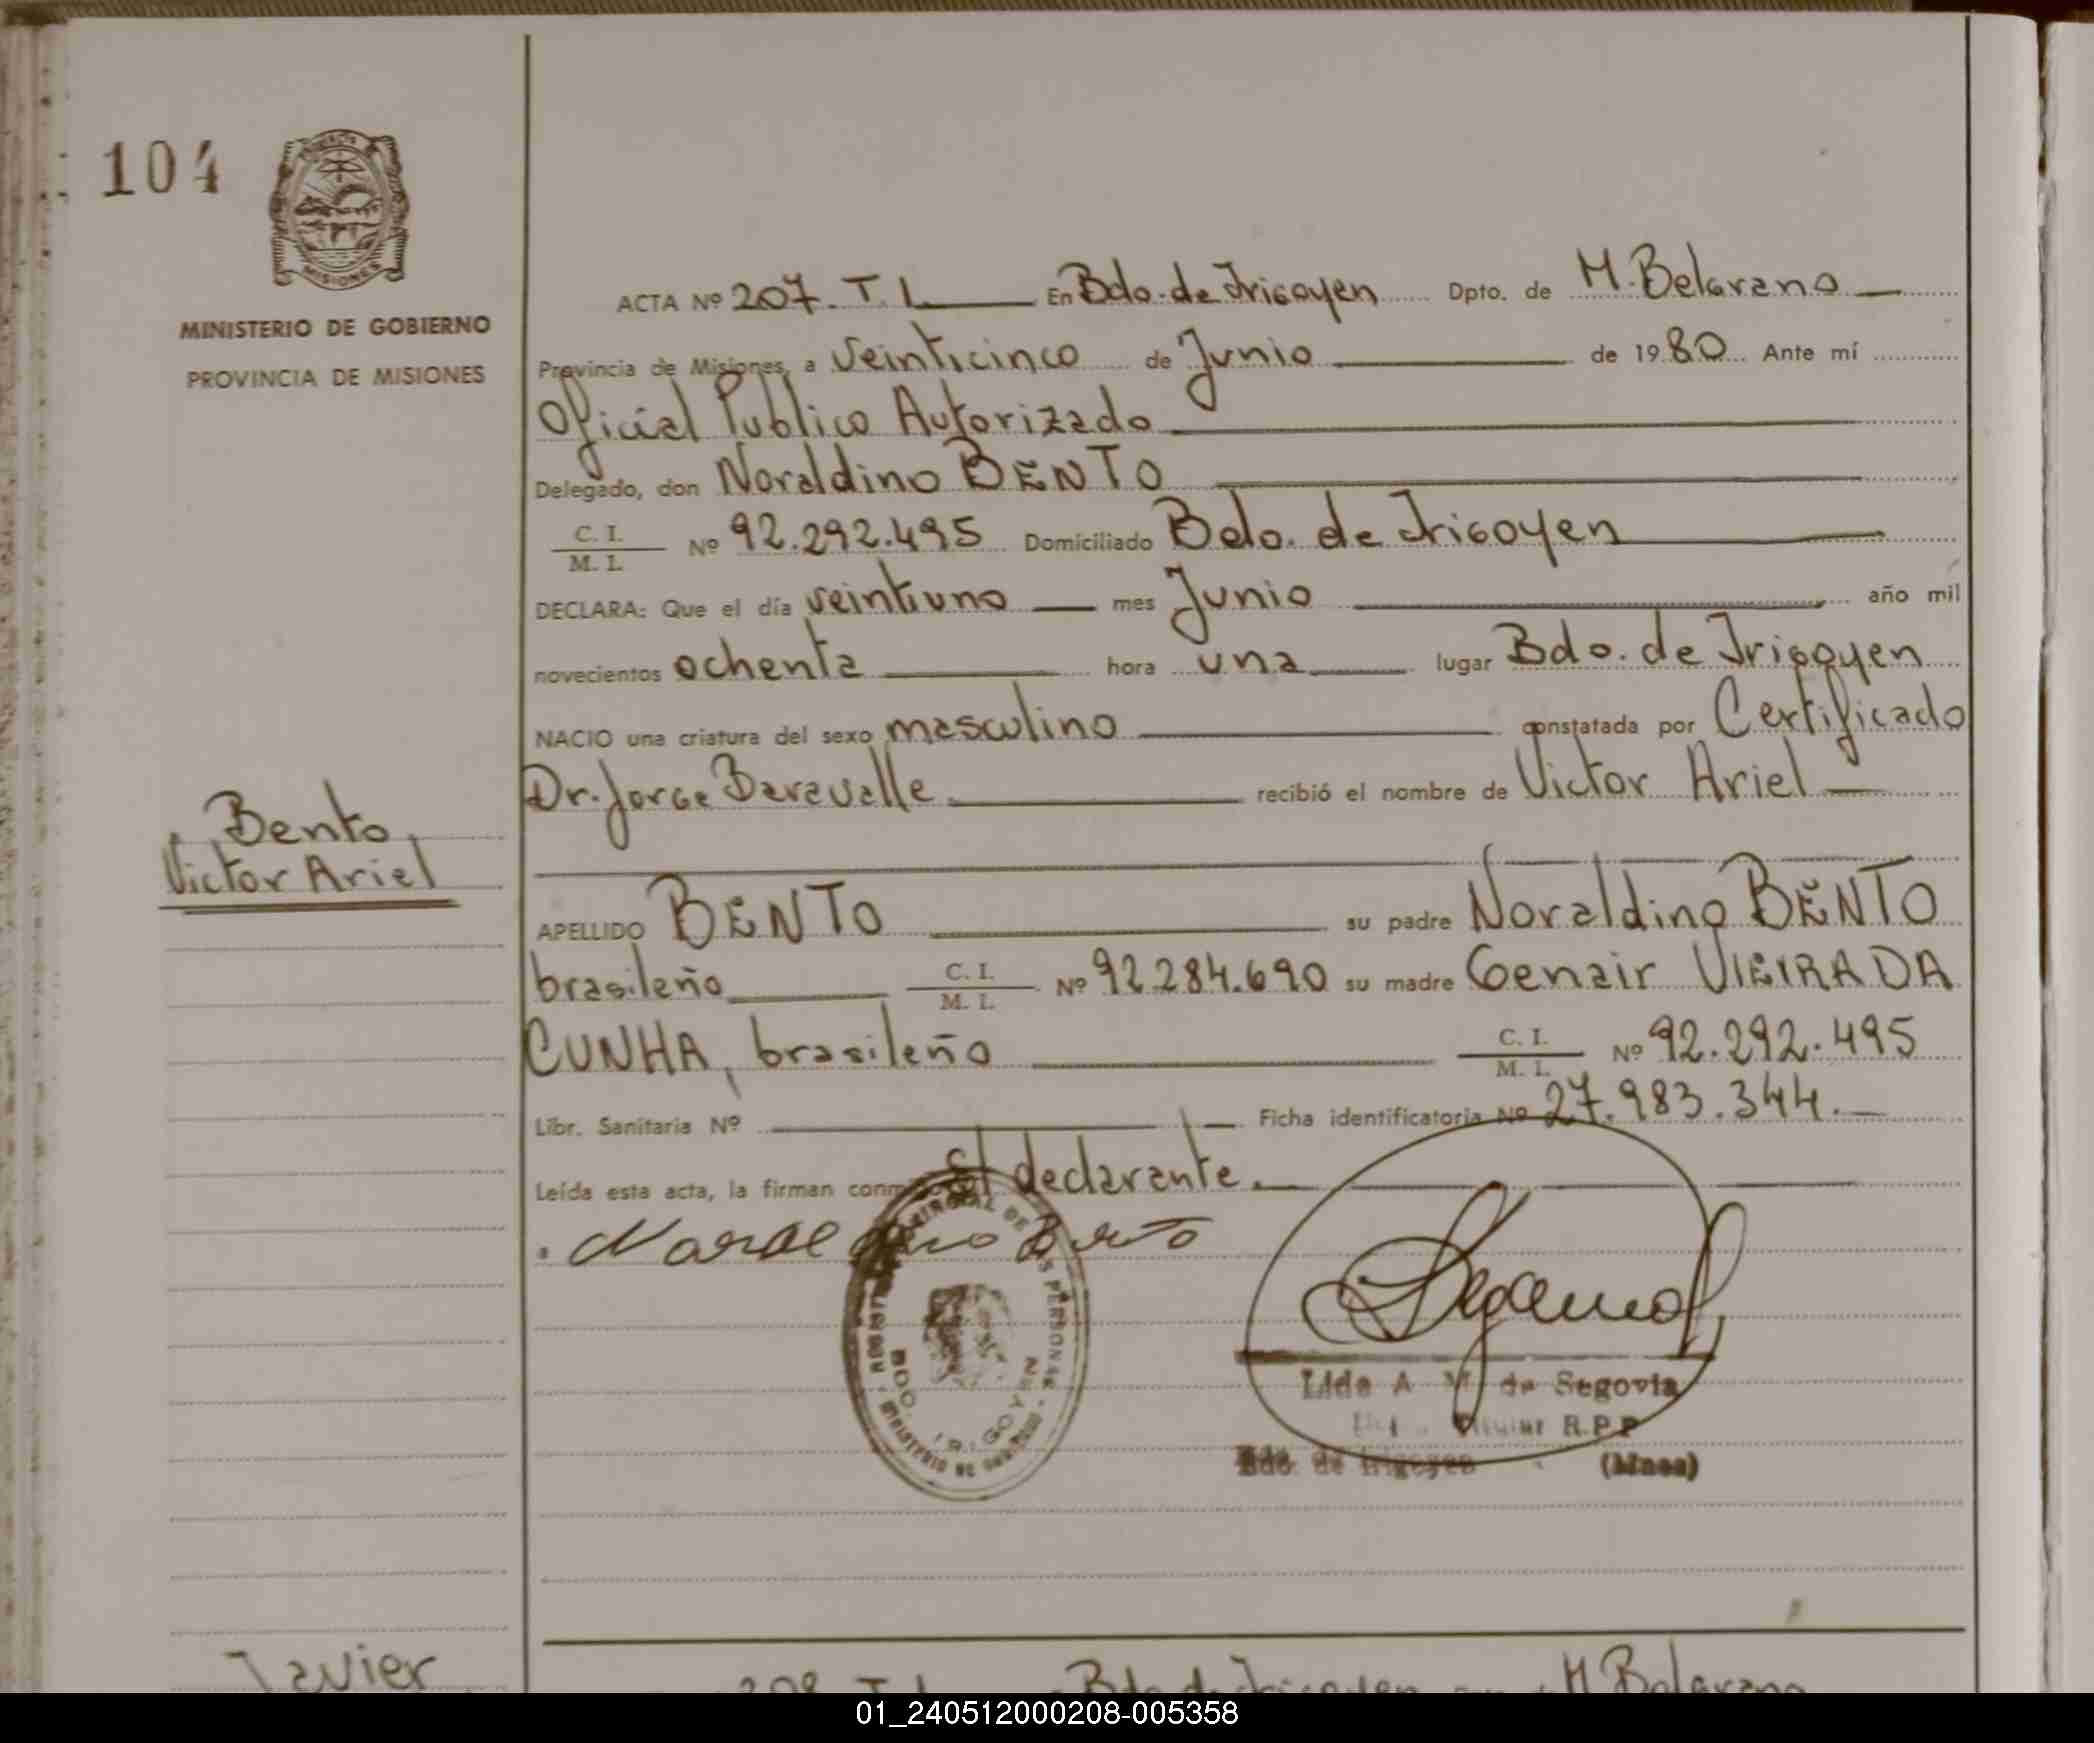 104
MISIONES
MINISTERIO DE GOBIERNO
PROVINCIA DE MISIONES
ACTA Nº 207. T. I. En Bdo. de Irigoyen Dpto. de M. Belgrano
Provincia de Misiones, a veinticinco de Junio de 1980 Ante mí
Oficial Publico Autorizado
Delegado, don Noraldino BENTO
C. I.
M. I. Nº 92.292.495 Domiciliado Bdo. de Irigoyen
DECLARA: Que el día veintiuno mes Junio año mil
novecientos ochenta hora una lugar Bdo. de Irigoyen
NACIO una criatura del sexo masculino constatada por Certificado
Dr. Jorge Baravalle recibió el nombre de Victor Ariel
Bento
Victor Ariel
APELLIDO BENTO su padre Noraldino BENTO
brasileño C. I.
M. I. Nº 92.284.690 su madre Genair VIEIRA DA
CUNHA, brasileño C. I.
M. I. Nº 92.292.495
Libr. Sanitaria Nº Ficha identificatoria Nº 27.983.344.
Leída esta acta, la firman el declarante.
Noraldino Bento
PERSONAS
BDO. IRIGOYEN
MINISTERIO DE GOBIERNO
de Segovia
R.P.P
Bdo. de Irigoyen (Mnes)
Javier
208 T. I. Bdo de Irigoyen M Belgrano
01_240512000208-005358